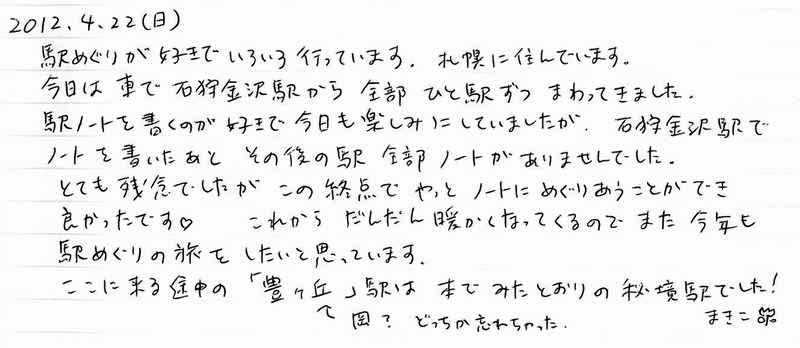 2012.4.22(日)
駅めぐりが好きでいろいろ行っています。札幌に住んでいます。
今日は車で石狩金沢駅から全部ひと駅ずつまわってきました。
駅ノートを書くのが好きで今日も楽しみにしていましたが、石狩金沢駅で
ノートを書いたあとその後の駅全部ノートがありませんでした。
とても残念でしたがこの終点でやっとノートにめぐりあうことができ
良かったです♡ これからだんだん暖かくなってくるのでまた今年も
駅めぐりの旅をしたいと思っています。
ここに来る途中の「豊ヶ丘」駅は本でみたとおりの秘境駅でした!
↑岡?どっちか忘れちゃった. まきこ